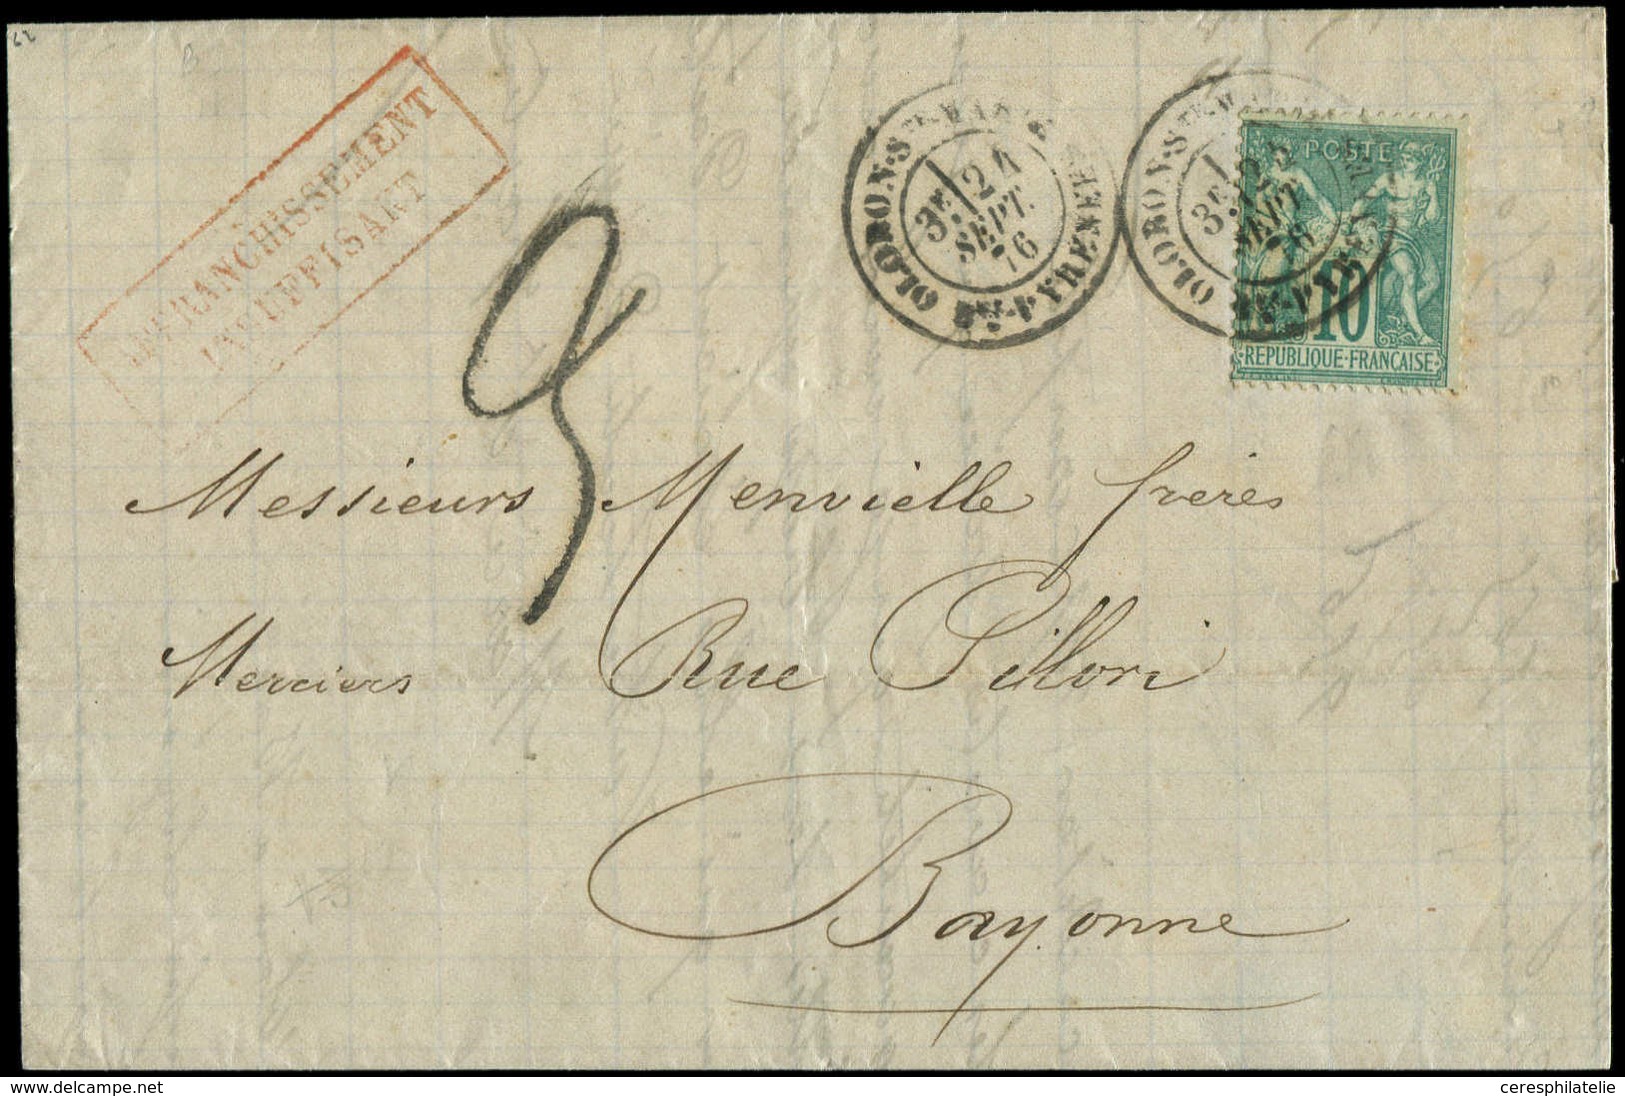 AFFRANCHISSEMENT
INSUFFISANT
OLORON-STE-MARIE
3E
24
SEPT.
76
BSES-PYRÉNÉES
OLORON-STE-MARIE
3E
SEPT
BSES-PYRÉNÉES
POSTE
10
REPUBLIQUE·FRANÇAISE
Messieurs Menvielle frères
Merciers Rue Pillori
Bayonne
www.delcampe.net
ceresphilatelie